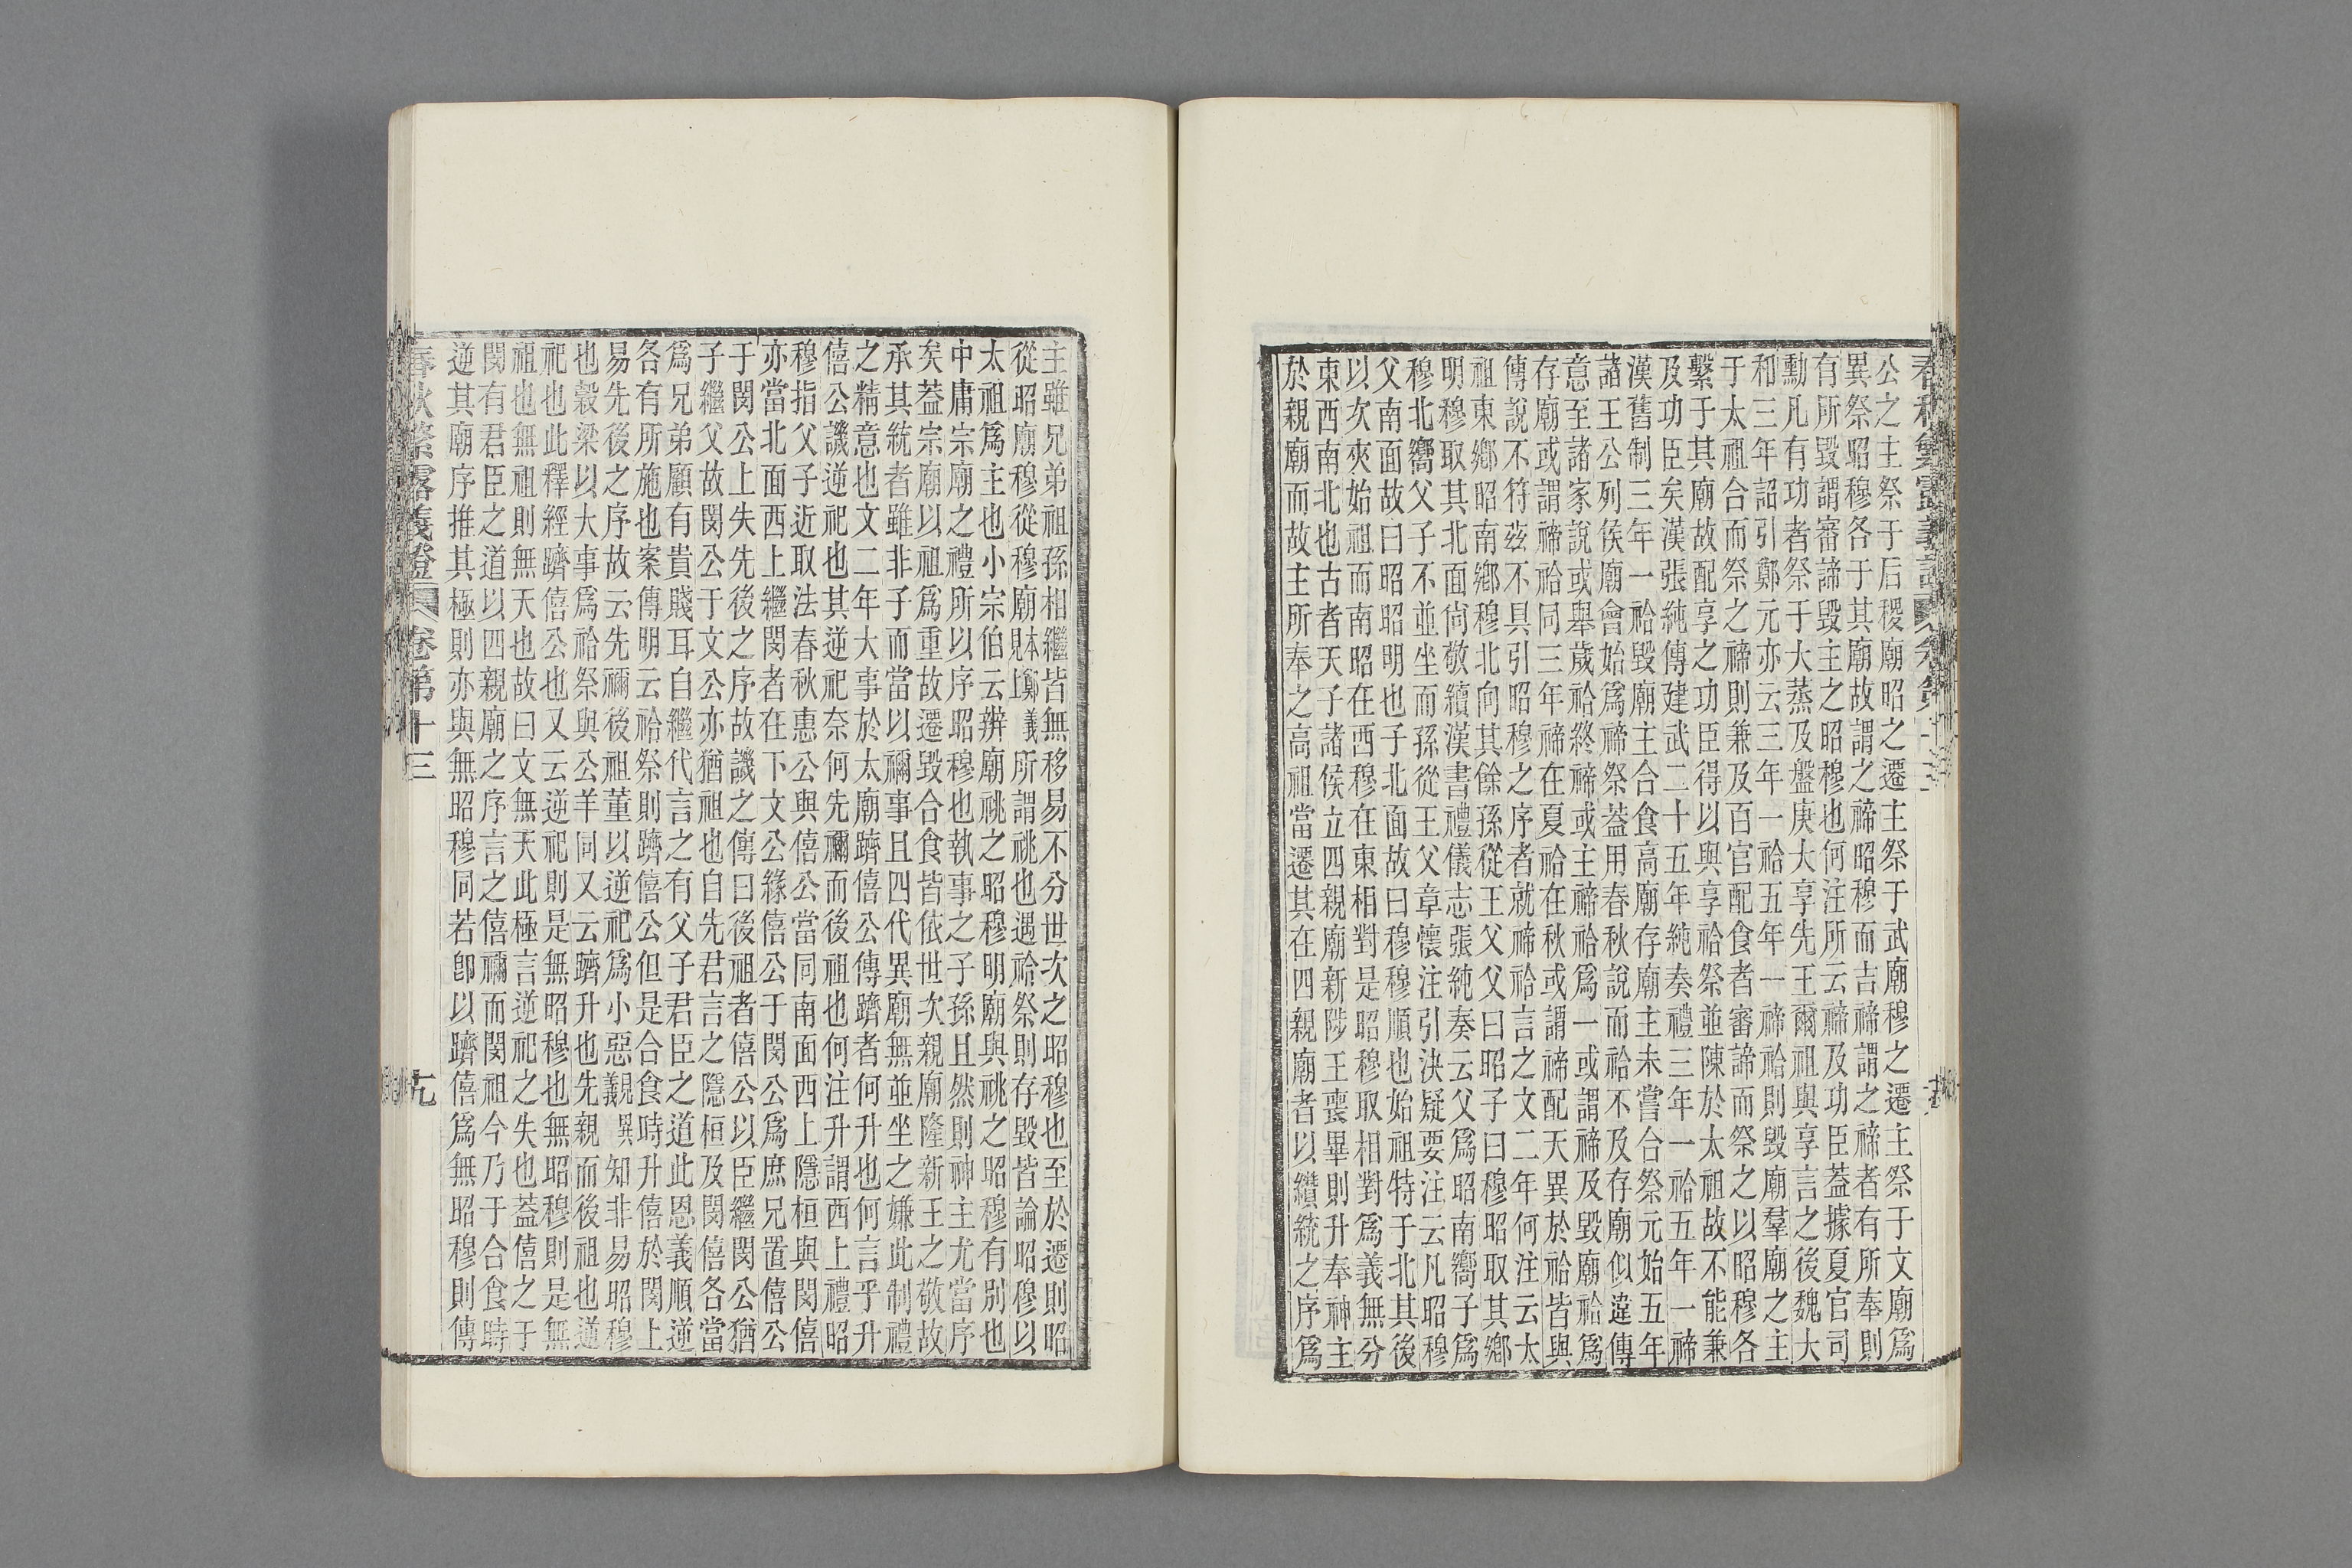 公之主祭于后稷廟昭之遷主祭于武廟穆之遷主祭于文廟爲
異祭昭穆各于其廟故謂之禘昭穆而吉禘謂之禘者有所奉則
有所毀謂審諦毀主之昭穆也何注所云禘及功臣蓋據夏官司
勳凡有功者祭于大蒸及盤庚大享先王爾祖與享言之後魏大
和三年詔引鄭元亦云三年一祫五年一禘祫則毀廟羣廟之主
于太祖合而祭之禘則兼及百官配食者審諦而祭之以昭穆各
繫于其廟故配享之功臣得以與享祫祭並陳於太祖故不能兼
及功臣矣漢張純傳建武二十五年純奏禮三年一祫五年一禘
漢舊制三年一祫毀廟主合食高廟存廟主未嘗合祭元始五年
諸王公列侯廟會始爲禘祭蓋用春秋說而祫不及存廟似違傳
意至諸家說或舉歲祫終禘或主禘祫爲一或謂禘及毀廟祫爲
存廟或謂禘祫同三年禘在夏祫在秋或謂禘配天異於祫皆與
傳說不符茲不具引昭穆之序者就禘祫言之文二年何注云太
祖東鄉昭南鄉穆北向其餘孫從王父父曰昭子曰穆昭取其鄉
明穆取其北面尙敬續漢書禮儀志張純奏云父爲昭南嚮子爲
穆北嚮父子不並坐而孫從王父章懷注引決疑要注云凡昭穆
父南面故曰昭昭明也子北面故曰穆穆順也始祖特于北其後
以次夾始祖而南昭在西穆在東相對是昭穆取相對爲義無分
東西南北也古者天子諸侯立四親廟新陟王喪畢則升奉神主
於親廟而故主所奉之高祖當遷其在四親廟者以纘統之序爲
主雖兄弟祖孫相繼皆無移易不分世次之昭穆也至於遷則昭
從昭廟穆從穆廟本鄭義所謂祧也遇祫祭則存毀皆論昭穆以
太祖爲主也小宗伯云辨廟祧之昭穆明廟與祧之昭穆有別也
中庸宗廟之禮所以序昭穆也執事之子孫且然則神主尤當序
矣蓋宗廟以祖爲重故遷毀合食皆依世次親廟隆新王之敬故
承其統者雖非子而當以禰事且四代異廟無並坐之嫌此制禮
之精意也文二年大事於太廟躋僖公傳躋者何升也何言乎升
僖公譏逆祀也其逆祀奈何先禰而後祖也何注升謂西上禮昭
穆指父子近取法春秋惠公與僖公當同南面西上隱桓與閔僖
亦當北面西上繼閔者在下文公緣僖公于閔公爲庶兄置僖公
于閔公上失先後之序故譏之傳曰後祖者僖公以臣繼閔公猶
子繼父故閔公于文公亦猶祖也自先君言之隱桓及閔僖各當
爲兄弟顧有貴賤耳自繼代言之有父子君臣之道此恩義順逆
各有所施也案傳明云祫祭則躋僖公但是合食時升僖於閔上
易先後之序故云先禰後祖董以逆祀爲小惡知非易昭穆
也穀梁以大事爲祫祭與公羊同又云躋升也先親而後祖也逆
祀也此釋經躋僖公也又云逆祀則是無昭穆也無昭穆則是無
祖也無祖則無天也故曰文無天此極言逆祀之失也蓋僖之于
閔有君臣之道以四親廟之序言之僖禰而閔祖今乃于合食時
逆其廟序推其極則亦與無昭穆同若卽以躋僖爲無昭穆則傳
春秋繁露義證 卷第十三 十九